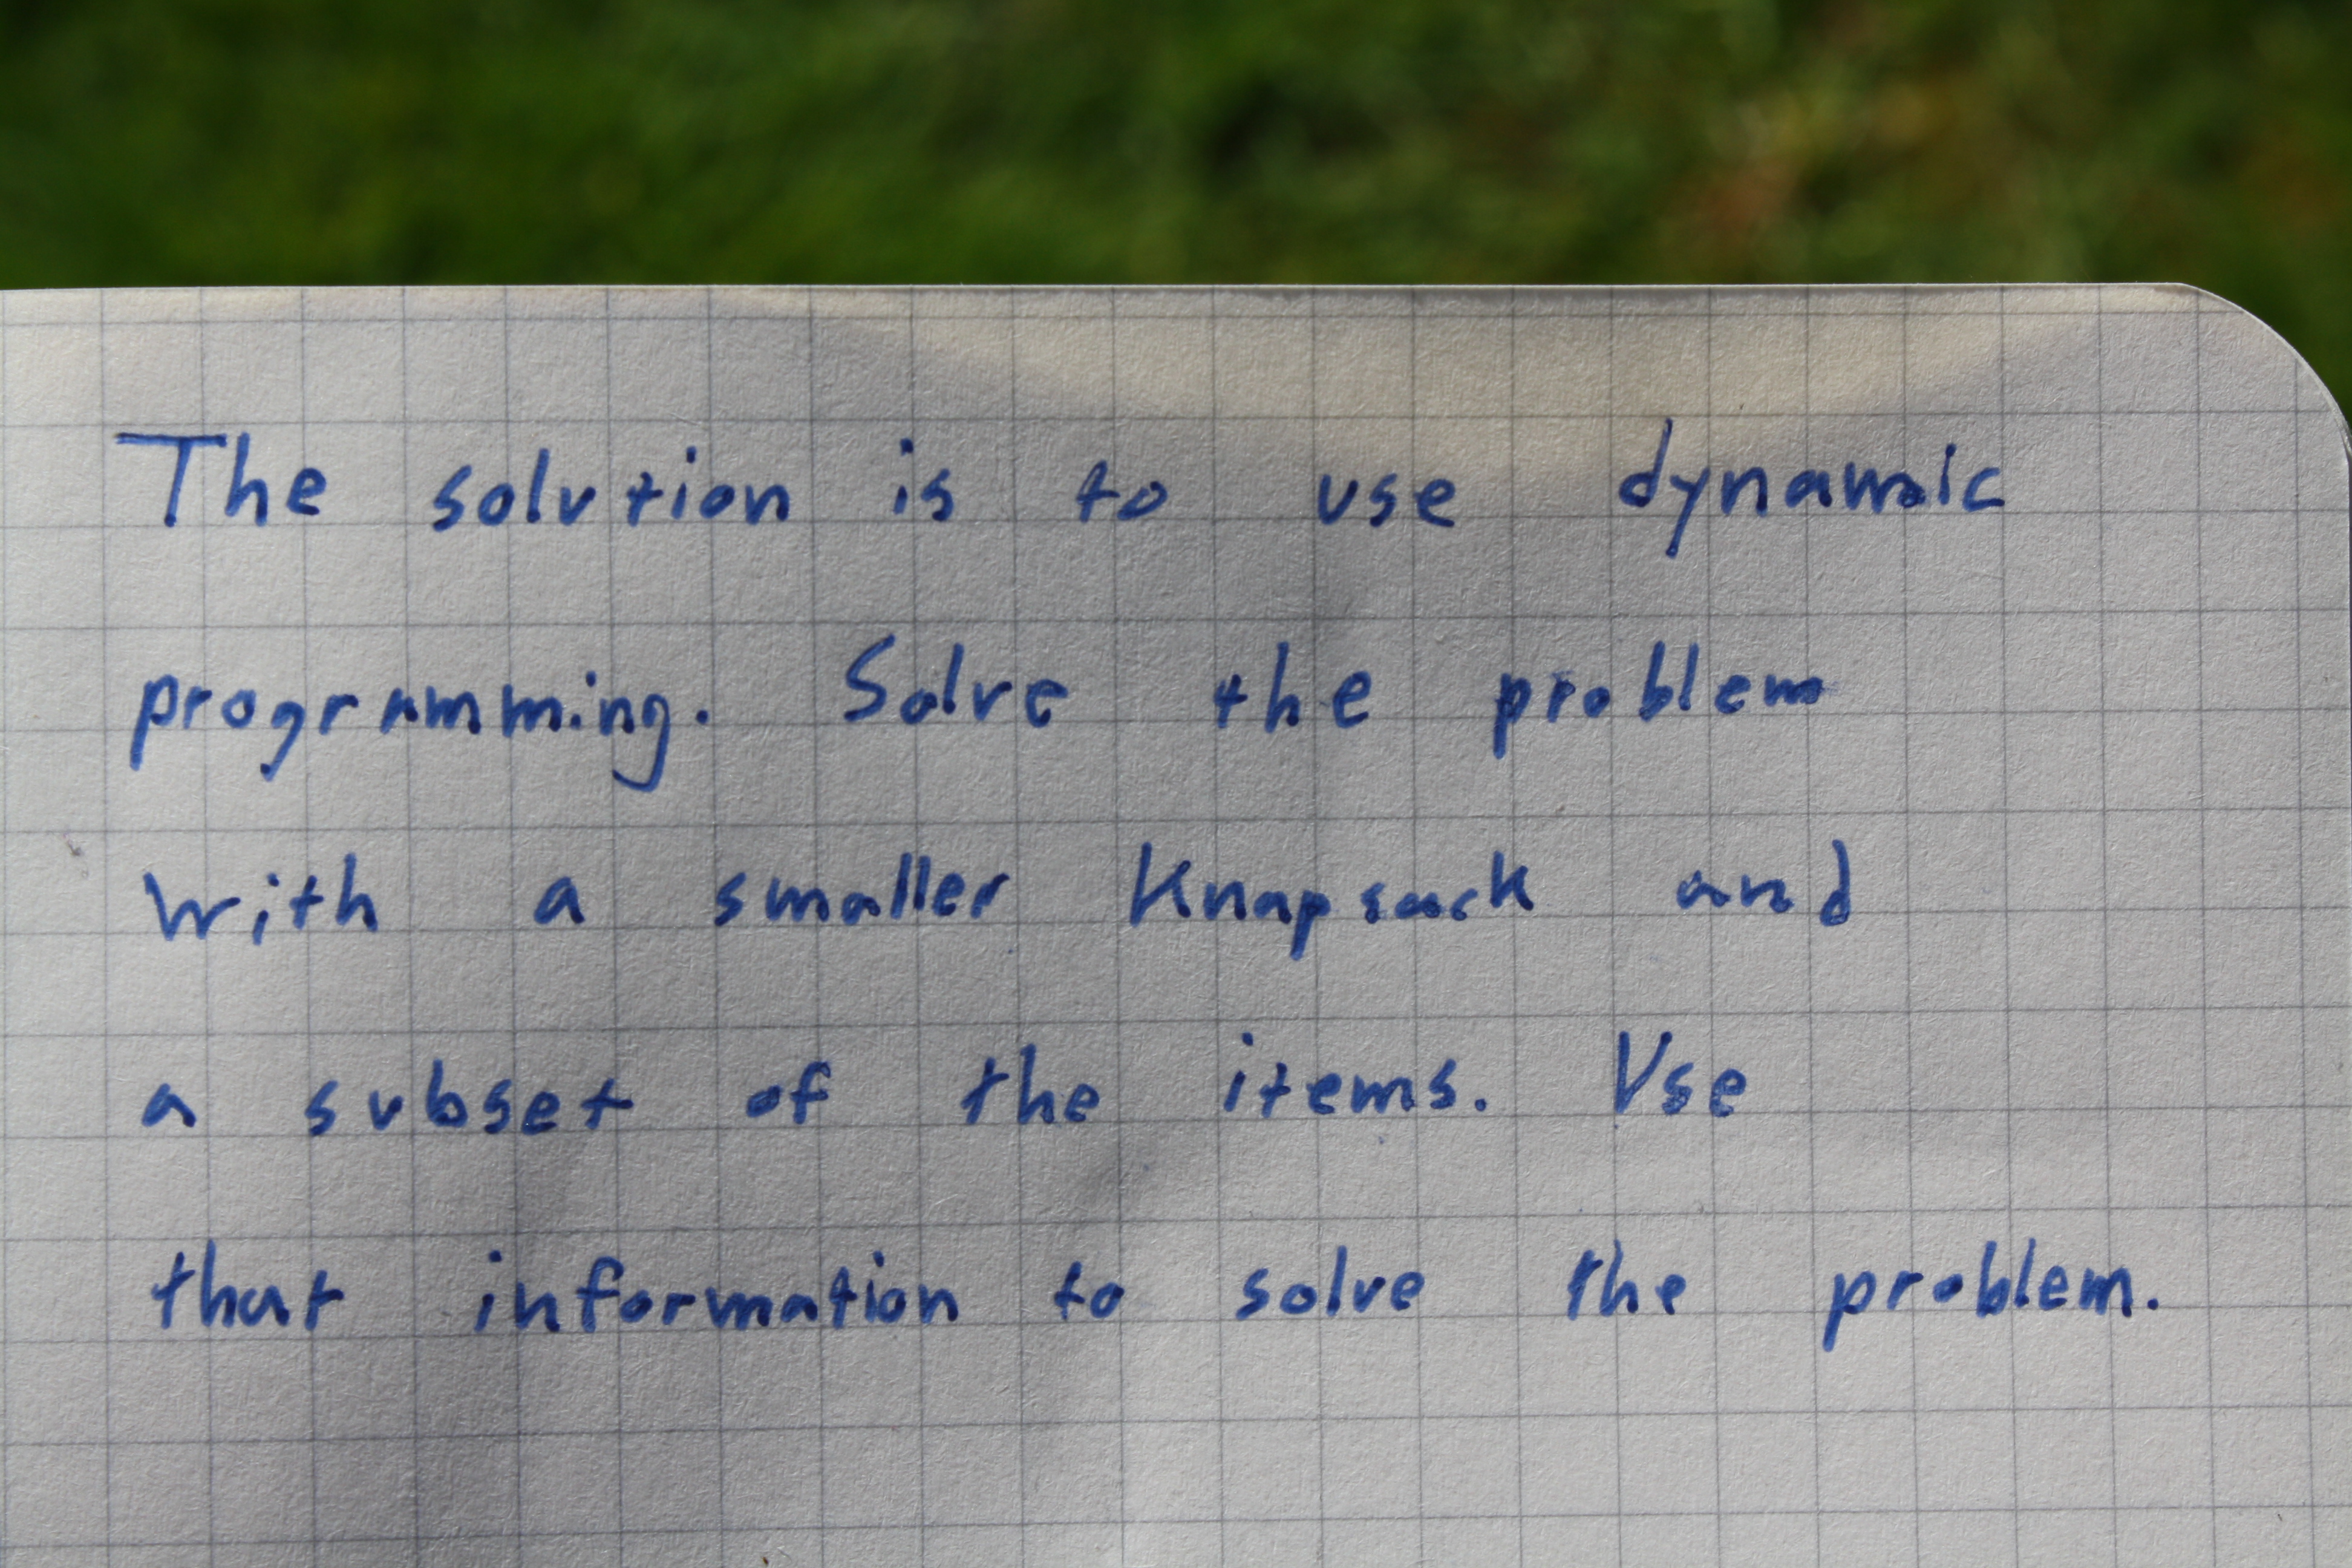 The solution is to use dynamic
programming. Solve the problem
with a smaller Knapsack and
a subset of the items. Use
that information to solve the problem.